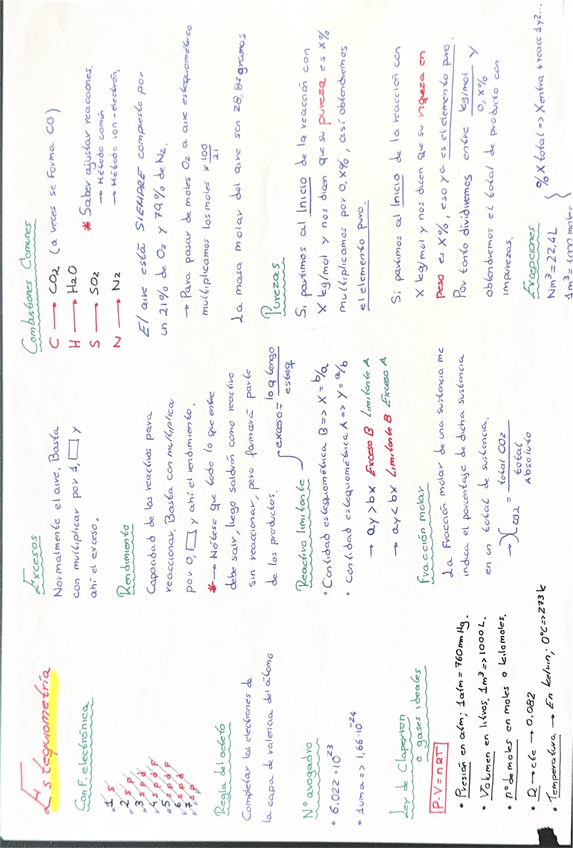 Estequiometría
Conf. electrónica
1 s
2 s p
3 s p d
4 s p d f
5 s p d f
6 s p d
7 s p
Regla del octeto
Completar los electrones de
la capa de valencia del átomo
Nº avogadro
• 6.022·10²³
• 1uma => 1,66·10⁻²⁴
Ley de Clapeyron
o gases ideales
P.V=nRT
• Presión en atm. 1atm = 760mmHg.
• Volumen en litros, 1m³=>1000L.
• nº de moles en moles o kilomoles.
• R → cte → 0.082
• Temperatura → En kelvin; 0ºC=>273k
Excesos
Normalmente el aire, Basta
con multiplicar por 1,□ y
ahí el exceso.
Rendimiento
Capacidad de los reactivos para
reaccionar. Basta con multiplicar
por 0,□ y ahí el rendimiento.
* → Nótese que todo lo que entre
debe salir, luego saldrán como reactivo
sin reaccionar, pero formará parte
de los productos.
Reactivo limitante exceso = lo q tengo / esteq
• Cantidad estequiométrica B => X = b/a
• Cantidad estequiométrica A => Y = a/b
→ ay > bx Exceso B Limitante A
→ ay < bx Limitante B Exceso A
Fracción molar
La fracción molar de una sustancia me
indica el porcentaje de dicha sustancia
en un total de sustancia.
→ X CO2 = total CO2 / total Absoluto
Combustiones Comunes
C → CO₂ (a veces se forma CO)
H → H₂O
S → SO₂
N → N₂
* Saber ajustar reacciones.
→ Método común
→ Método ion-electrón.
El aire está SIEMPRE compuesto por
un 21% de O₂ y 79% de N₂.
→ Para pasar de moles O₂ a aire estequiométrico
multiplicamos los moles x 100/21
La masa molar del aire son 28,87gramos
Purezas
Si partimos al Inicio de la reacción con
X kg/mol y nos dicen que su pureza es X%
multiplicamos por 0,X%, así obtendremos
el elemento puro.
Si partimos al Inicio de la reacción con
X kg/mol y nos dicen que su riqueza en
peso es X%, eso ya es el elemento puro.
Por tanto dividiremos entre kg/mol / 0,X% y
obtendremos el total de producto con
impurezas.
Excepciones
Nm³=22,4L
1m³=1000 moles
% X total => Xentra + reacc